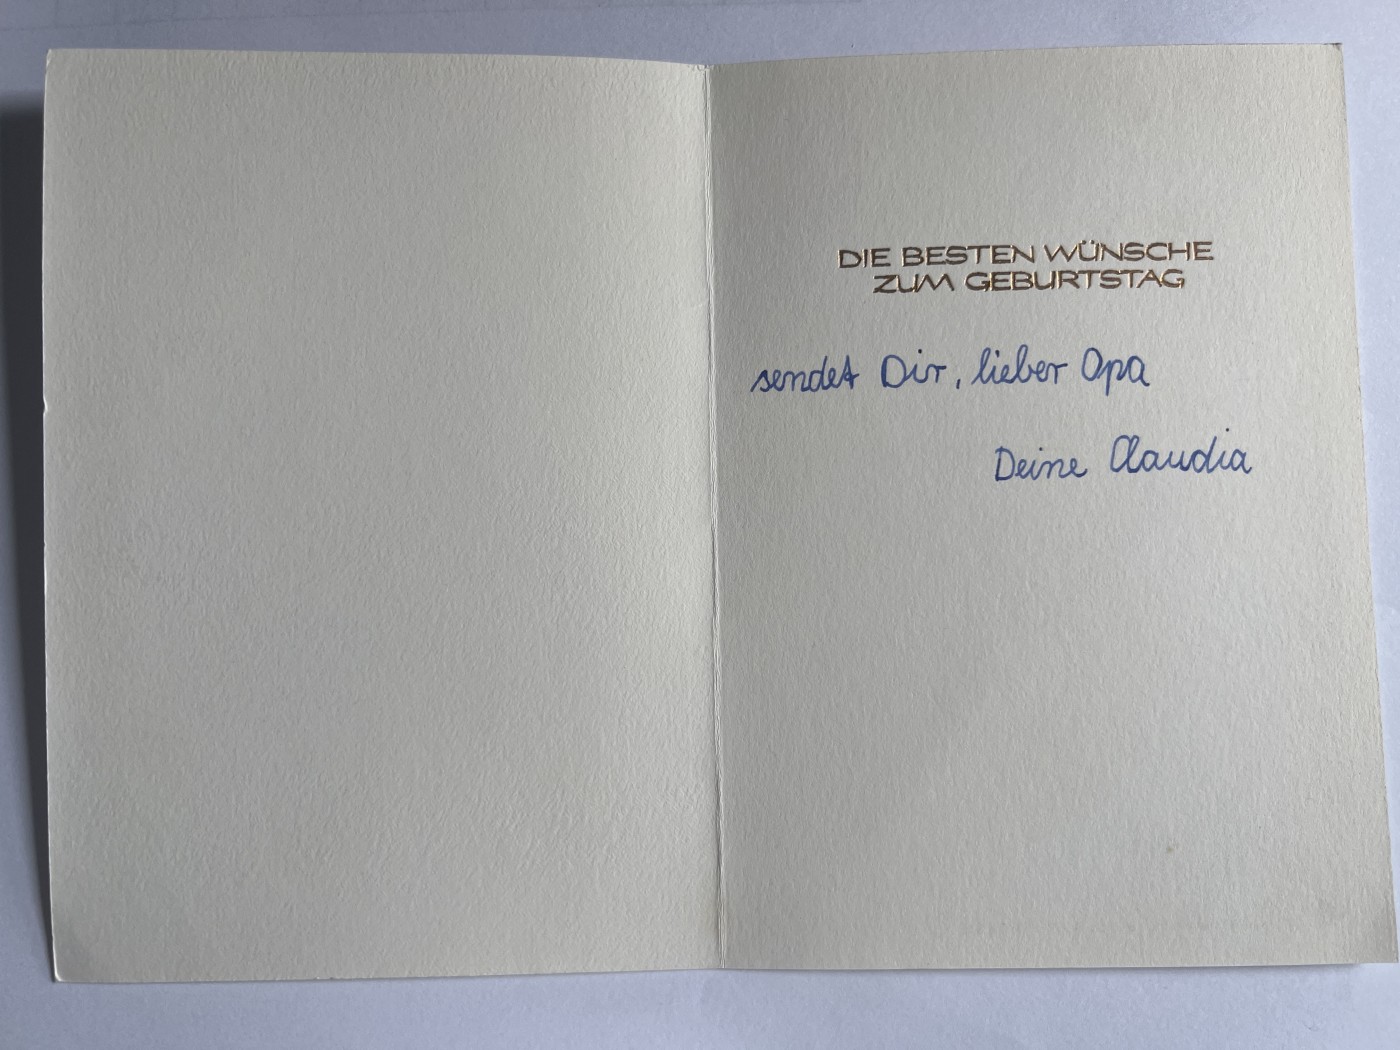 DIE BESTEN WÜNSCHE
ZUM GEBURTSTAG
sendet Dir, lieber Opa
Deine Claudia